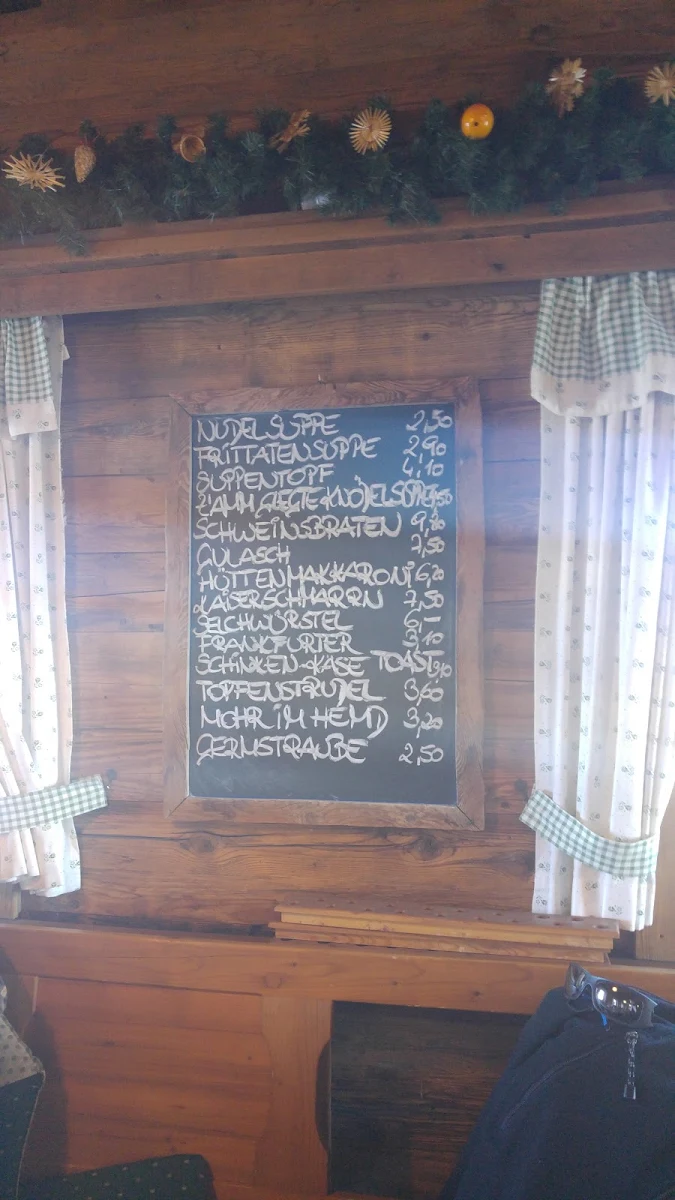 NUDELSUPPE 2,50
FRITTATENSUPPE 2,90
SUPPENTOPF 4,10
SCHWEINSBRATEN
GULASCH 7,50
HÜTTENMAKKARONI 6,20
KAISERSCHMARRN 7,50
SELCHWÜRSTEL 6,-
FRANKFURTER 3,10
SCHINKEN-KÄSE TOAST
TOPFENSTRUDEL 3,60
MOHR IM HEMD 3,20
GERMSTRAUBE 2,50